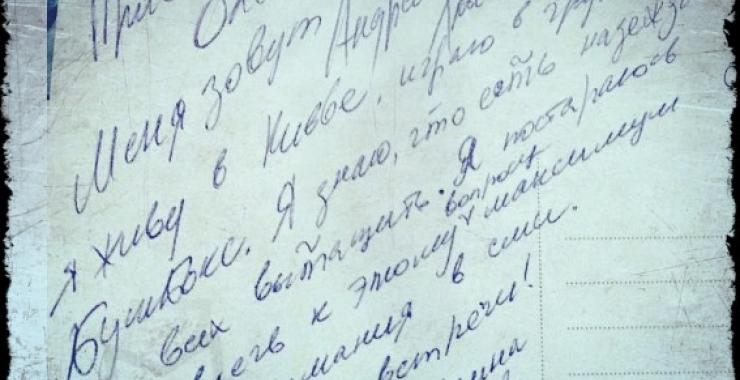 Меня зовут Андрей
я живу в Киеве, играю в гру
Бумбокс. Я знаю, что есть надежда
всех вытащить. Я постараюсь
влечь к этому вопросу максимум
мания в сми.
встречи!